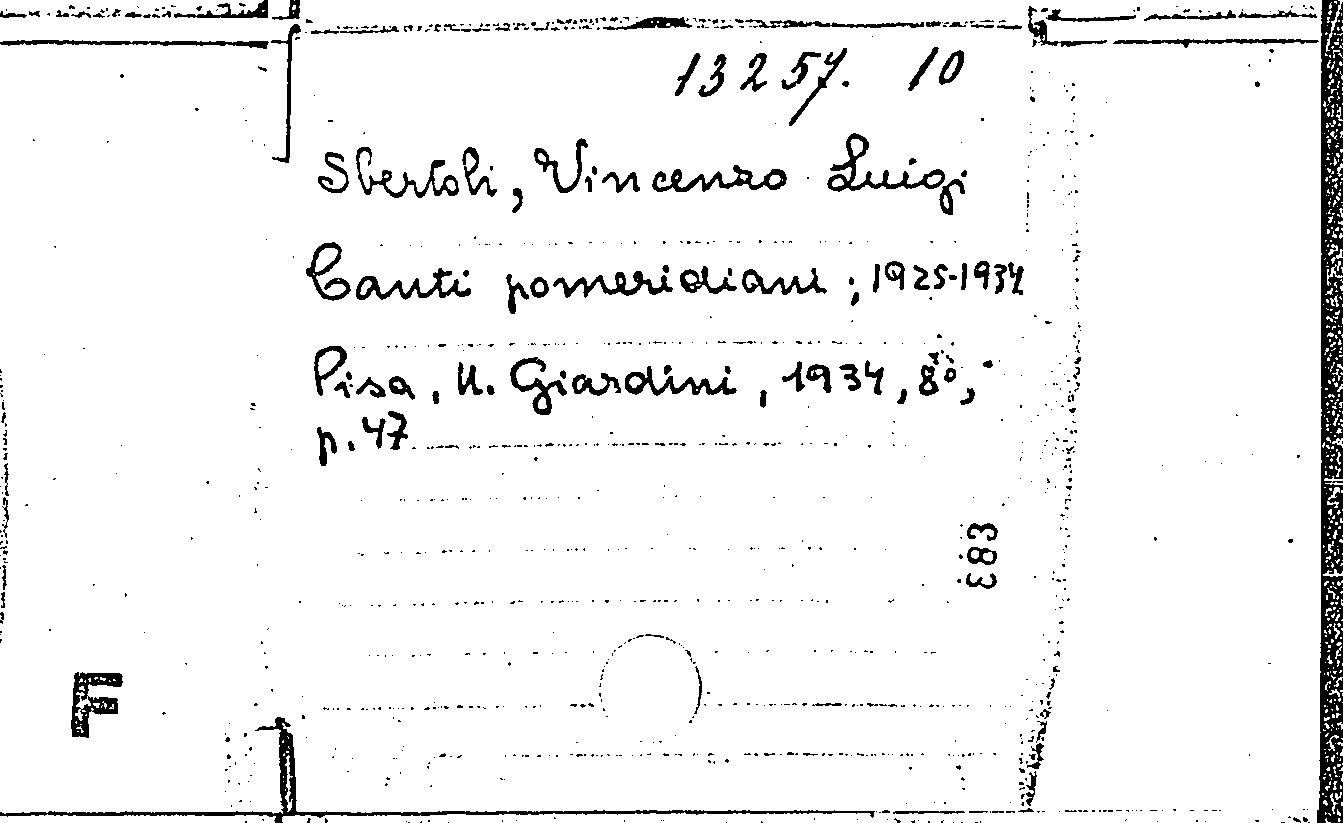 13257. 10
Sbertoli, Vincenzo Luigi
Canti pomeridiani ; 1925-1934
Pisa, U. Giardini, 1934, 8°,
p. 47
E83
F